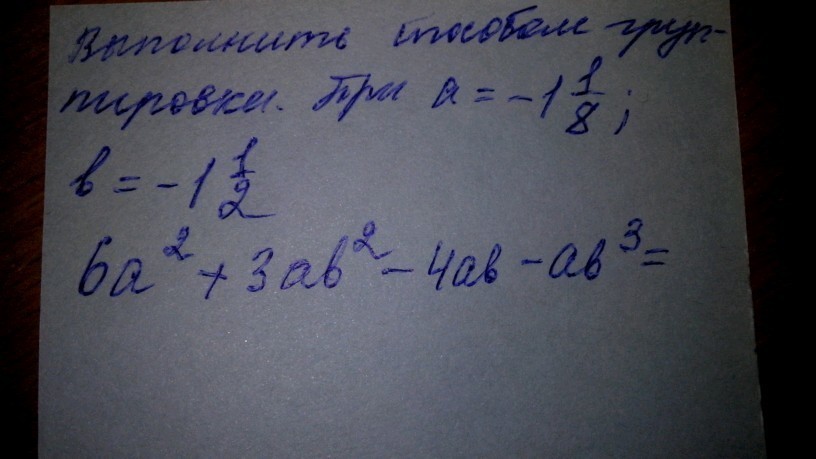 Выполнить способом груп-
пировки. При a = -1 1/8;
b = -1 1/2
6a² + 3ab² - 4ab - ab³ =